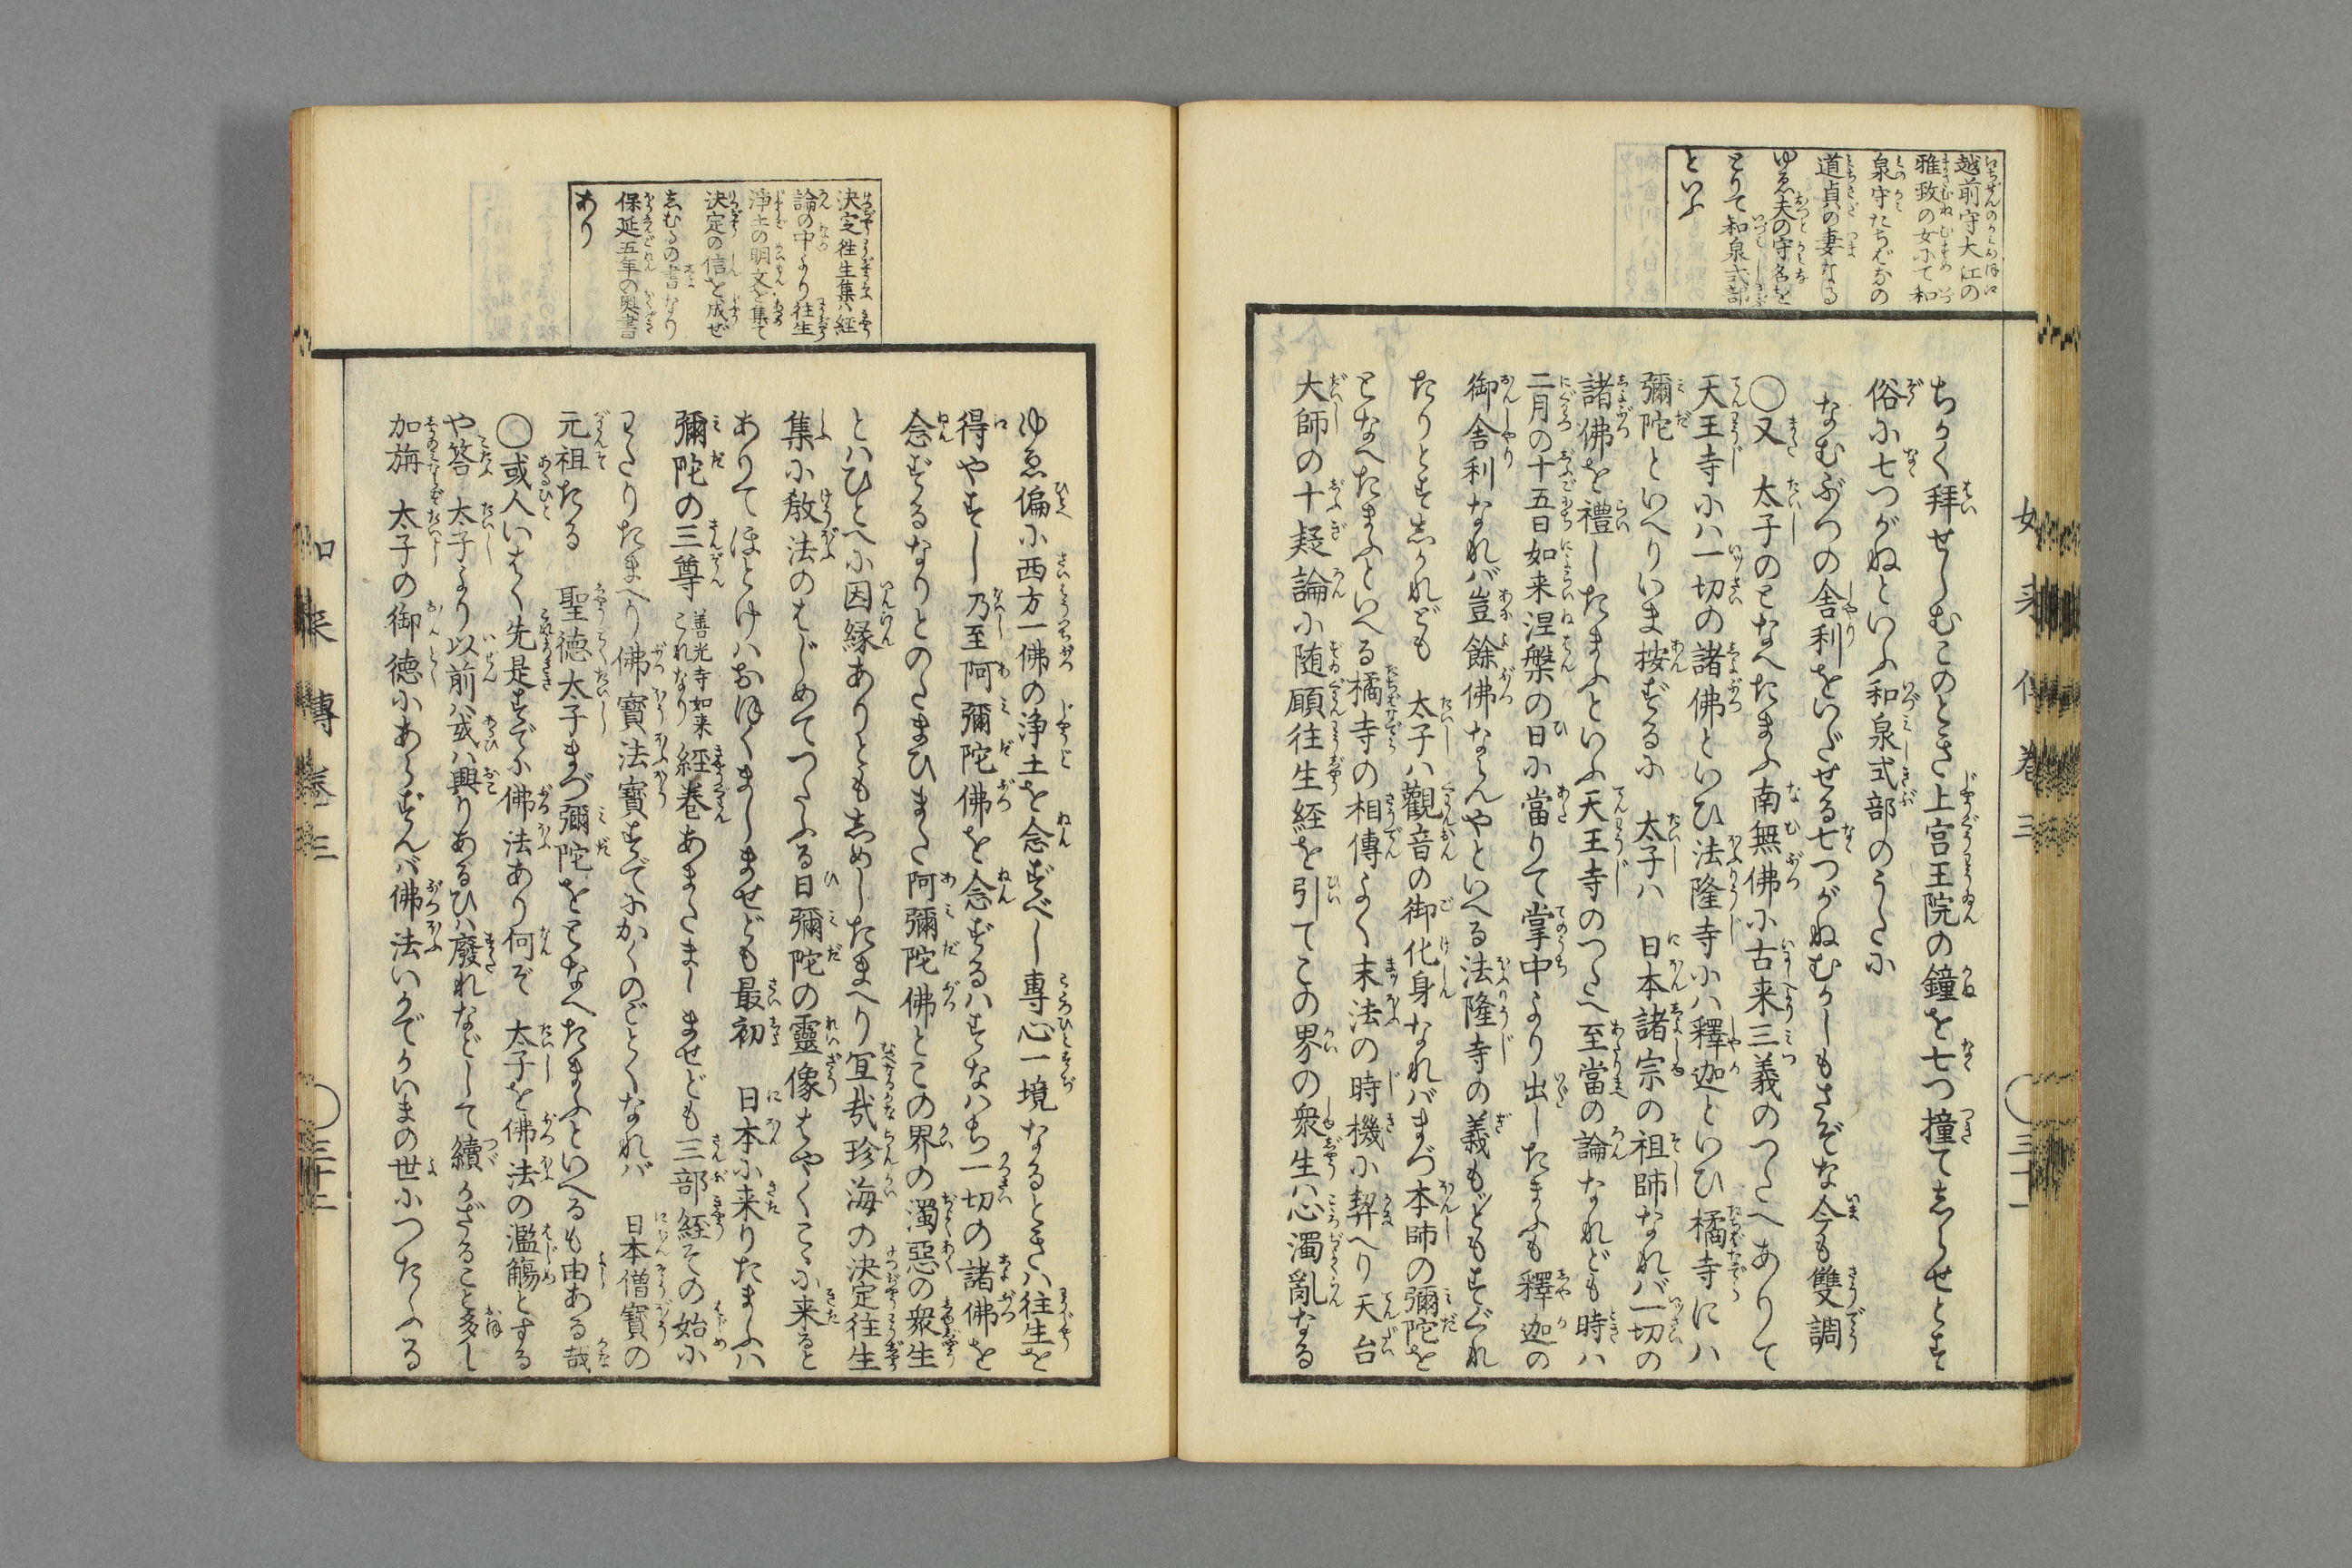 越前守大江の
雅致の女にて和
泉守たちばなの
道貞の妻なる
ゆゑ夫の守名を
とりて和泉式部
といふ
ちかく拜せしむこのとき上宮王院の鐘を七つ撞てしらせとす
俗に七つがねといふ和泉式部のうたに
なむぶつの舎利をいだせる七つがねむかしもさぞな今も雙調
〇又　太子のとなへたまふ南無佛に古来三義のつたへありて
天王寺にハ一切の諸佛といひ法隆寺にハ釋迦といひ橘寺にハ
彌陀といへりいま按ずるに　太子ハ　日本諸宗の祖師なれバ一切の
諸佛を禮したまふといふ天王寺のつたへ至當の論なれども時ハ
二月の十五日如来涅槃の日に當りて掌中より出したまふも釋迦の
御舎利なれバ豈餘佛ならんやといへる法隆寺の義もどもすぐれ
たりとすしかれども　太子ハ觀音の御化身なれバまづ本師の彌陀を
となへたまふといへる橘寺の相傳よく末法の時機に契へり天台
大師の十疑論に随願往生経を引てこの界の衆生ハ心濁亂なる
如来傳巻三
三十一
決定往生集ハ経
論の中より往生
淨土の明文を集て
決定の信を成ぜ
しむるの書なり
保延五年の奥書
あり
ゆゑ偏に西方一佛の浄土を念ずべし專心一境なるときハ往生を
得やすし乃至阿彌陀佛を念ずるハすなハち一切の諸佛を
念ずるなりとのたまひまた阿彌陀佛とこの界の濁惡の衆生
とハひとへに因縁ありともしめしたまへり宜哉珍海の決定往生
集に教法のはじめてつたふる日彌陀の靈像はやくこゝに来ると
ありてほとけハおほくましませども最初　日本に来りたまふハ
彌陀の三尊善光寺如来これなり経巻あまたましませども三部経その始に
わたりたまへり佛寶法寶すでにかくのごとくなれバ　日本僧寶の
元祖たる　聖徳太子まづ彌陀をとなへたまふといへるも由ある哉
〇或人いはく先是すでに佛法あり何ぞ　太子を佛法の濫觴とする
や答　太子より以前ハ或ハ興りあるひハ廢れなどして續かざること多し
加旃　太子の御徳にあらずんバ佛法いかでかいまの世につたふる
如来傳巻三
三十二